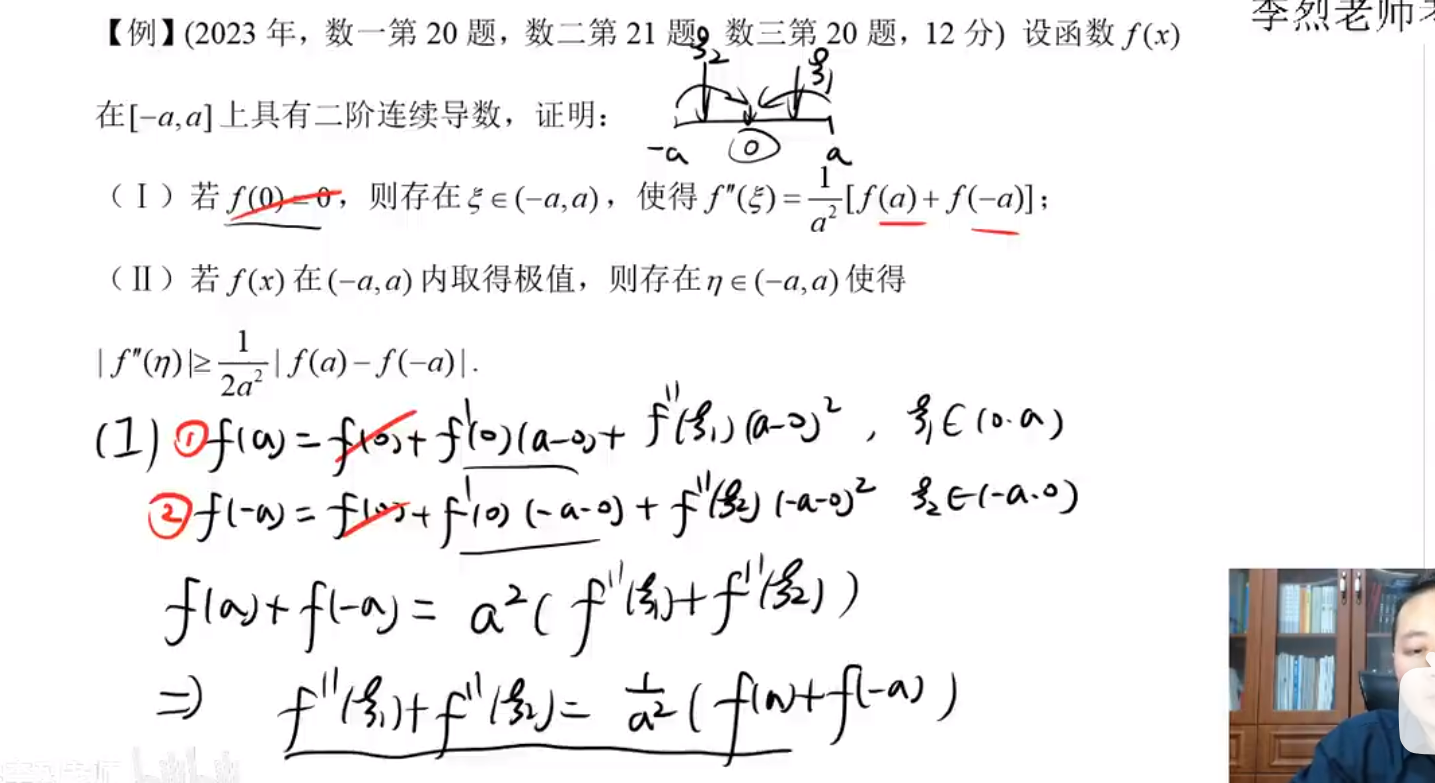 李烈老师
【例】(2023 年，数一第 20 题，数二第 21 题，数三第 20 题，12 分) 设函数 f(x)
ξ₂ ξ₁
在[−a,a]上具有二阶连续导数，证明：
-a 0 a
（Ⅰ）若 f(0)=0，则存在 ξ∈(−a,a)，使得 f″(ξ)=1/a²[f(a)+f(−a)]；
（Ⅱ）若 f(x) 在 (−a,a) 内取得极值，则存在 η∈(−a,a) 使得
|f″(η)|≥1/2a²|f(a)−f(−a)|.
(1) ①f(a)=f(0)+f'(0)(a-0)+f''(ξ₁)(a-0)², ξ₁∈(0.a)
②f(-a)=f(0)+f'(0)(-a-0)+f''(ξ₂)(-a-0)² ξ₂∈(-a.0)
f(a)+f(-a)=a²(f''(ξ₁)+f''(ξ₂))
⇒ f''(ξ₁)+f''(ξ₂)=1/a²(f(a)+f(-a))